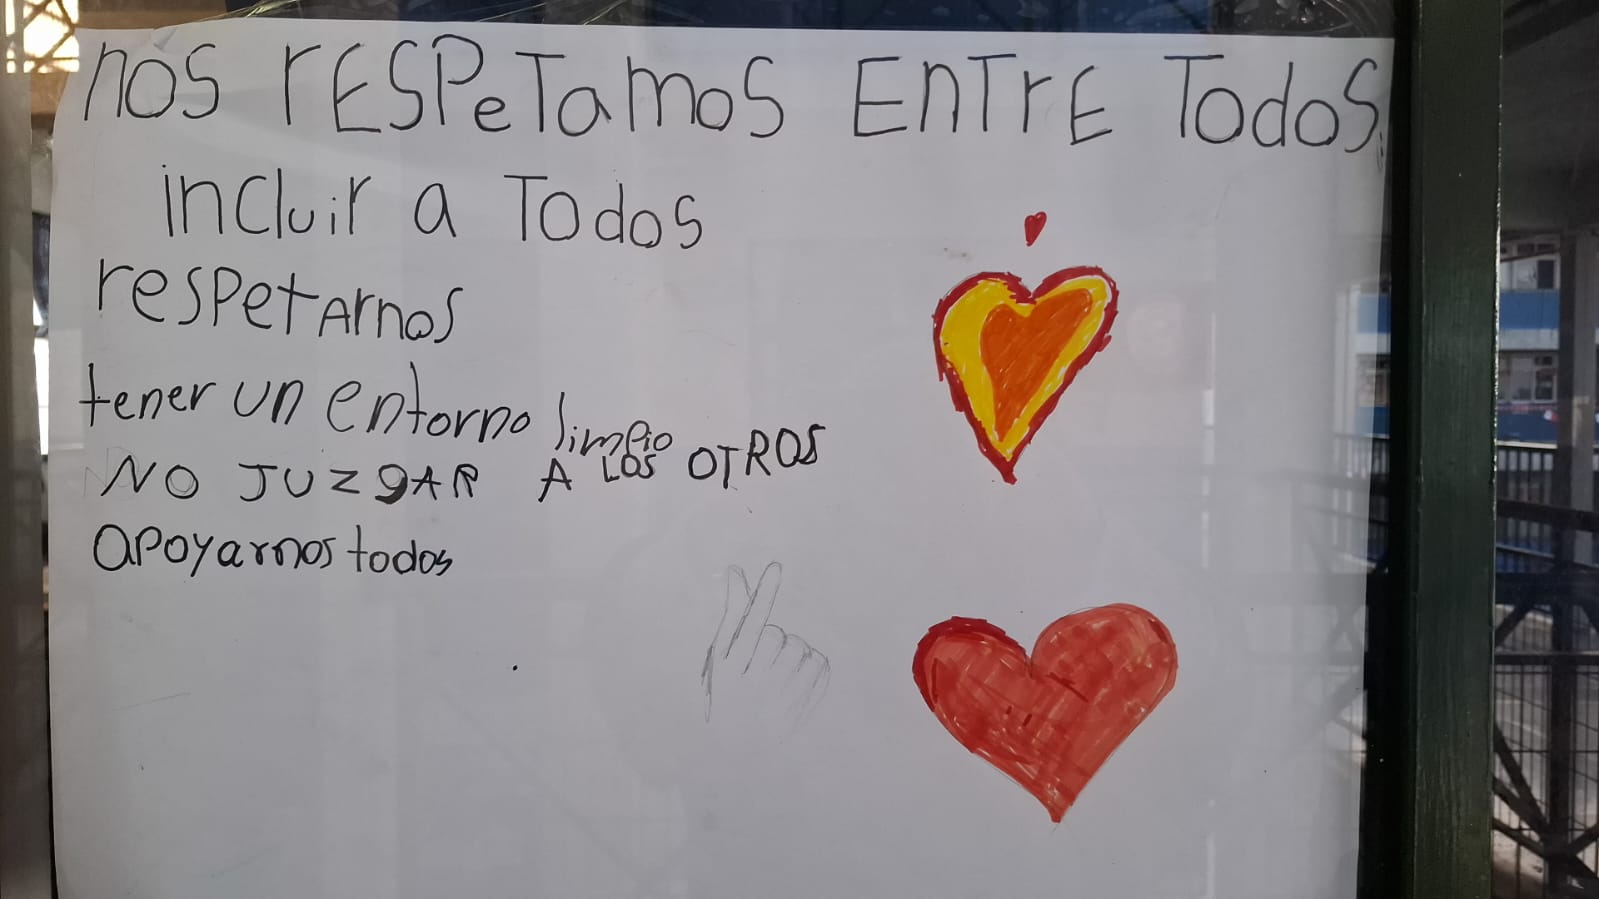 nos rESPeTamos EnTrE Todos.
incluir a Todos
respetArnos
tener un entorno limpio
NO JUZgAR A LOS OTROS
apoyarnos todos